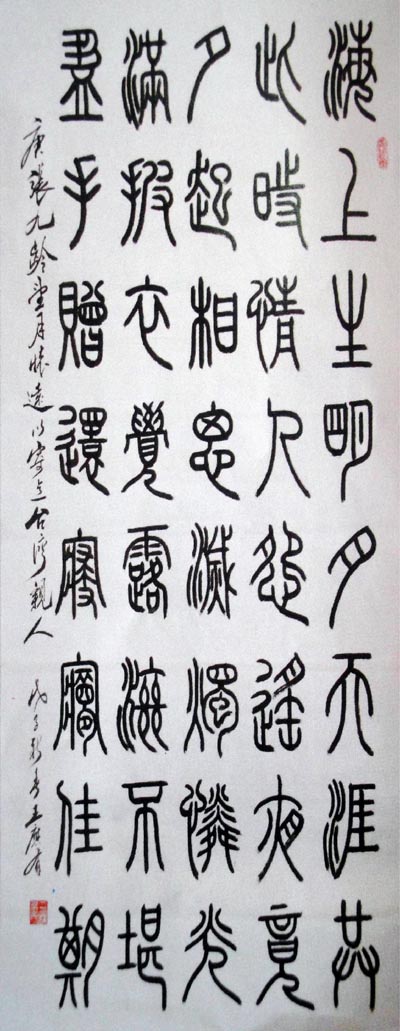 海上生明月天涯共
此時情人怨遙夜竟
夕起相思滅燭憐光
滿披衣覺露滋不堪
盡手贈還寢寤佳期
唐張九齡望月懷遠以寄台灣親人
戊子新春王